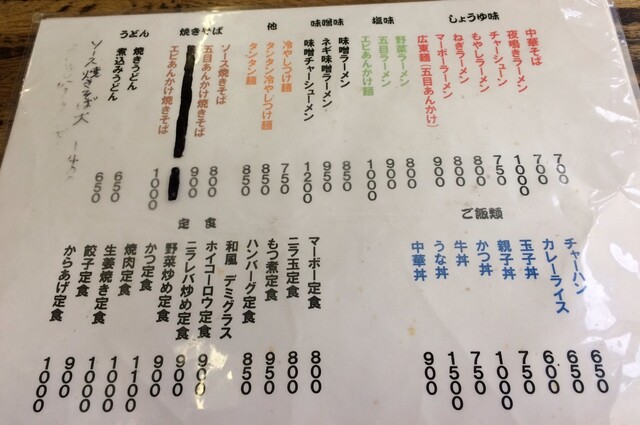 しょうゆ味
中華そば 700
夜鳴きラーメン 700
チャーシューメン 1000
もやしラーメン 750
ねぎラーメン 800
マーボーラーメン 800
広東麺(五目あんかけ) 900
塩味
野菜ラーメン 800
五目ラーメン 900
エビあんかけ麺 1000
味噌味
味噌ラーメン 850
ネギ味噌ラーメン 950
味噌チャーシューメン 1200
他
冷やしつけ麺 750
タンタン冷やしつけ麺 850
タンタン麺 850
焼きそば
ソース焼きそば 800
五目あんかけ焼きそば 900
エビあんかけ焼きそば 1000
うどん
焼きうどん 650
煮込みうどん 650
ソース焼きそば大
ご飯類
チャーハン 650
カレーライス 650
玉子丼 600
親子丼 750
かつ丼 1000
牛丼 750
うな丼 1500
中華丼 900
定食
マーボー定食 800
ニラ玉定食 800
もつ煮定食 950
ハンバーグ定食 850
和風 デミグラス
ホイコーロウ定食 900
ニラレバ炒め定食 900
野菜炒め定食 900
かつ定食 1000
焼肉定食 1100
生姜焼き定食 1000
餃子定食 900
からあげ定食 1000